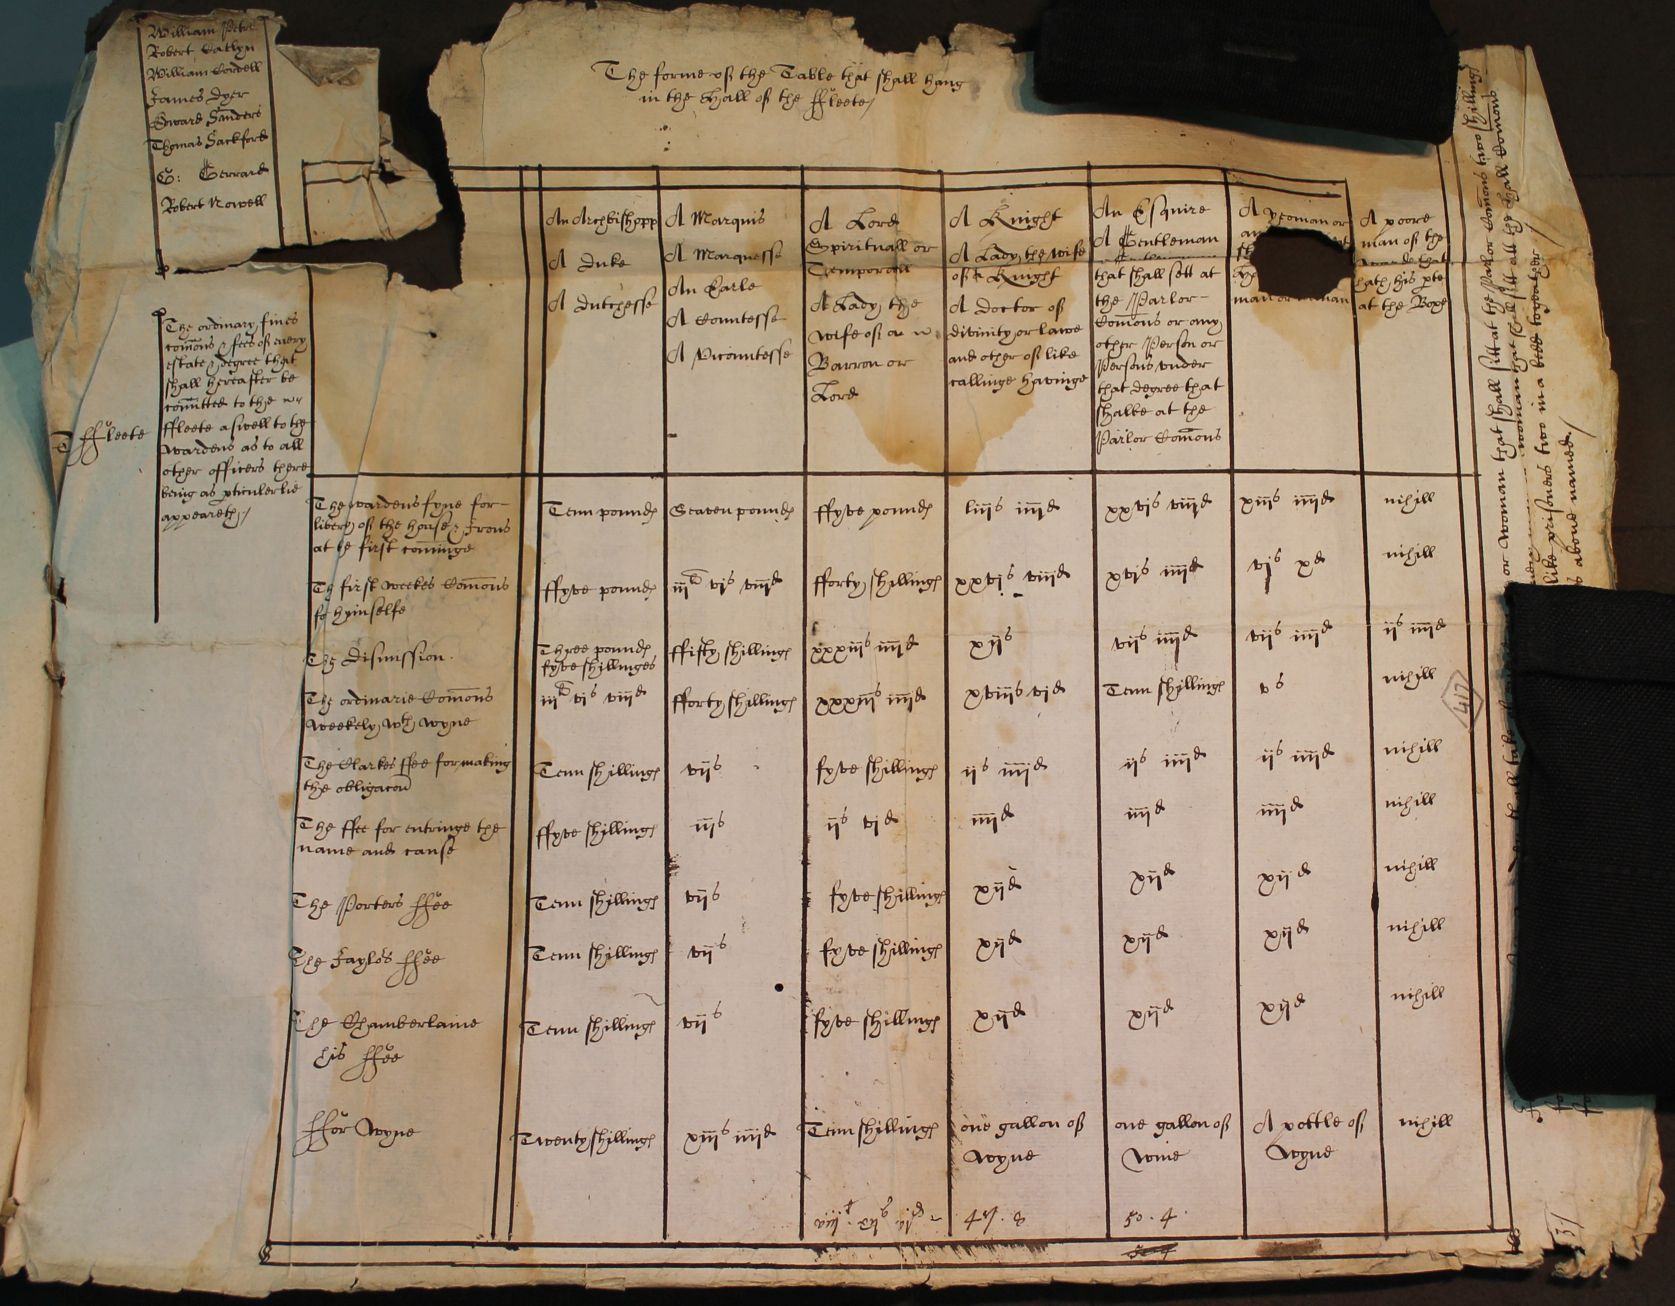 William Petre
Robert Catlyn
William Cordell
James Dyer
Edward Sanders
Thomas Sackford
G: Gerrard
Robert Nowell
The forme off the Table that shall hang
in the Hall off the ffleete
ffleete
The ordinary fines
comõns & fees off every
estate & degree that
shall hereafter be
comitted to the
ffleete aswell to the
wardens as to all
other officers there
being as pticulerlie
appeareth
An Archbishopp
A Duke
A Dutchesse
A Marquis
A Marquesse
An Earle
A Countesse
A Vicountesse
A Lord
Spirituall or
Temporall
A Lady the
wife off a
Barron or
Lord
A Knight
A Lady the wife
off a Knight
A doctor off
divinity or lawe
and other off like
callinge havinge
An Esquire
A Gentleman
that shall sett at
the Parlor
Comõns or any
other Person or
Persons vnder
that degree that
shalbe at the
Parlor Comõns
A Yeoman or
man or woman
A poore
man off the
warde that
hath his pte
at the Boxe
The wardens fyne for
liberty off the house & Irons
at he first cominge
Tenn poundes
Seaven poundes
ffyve poundes
liijs iiijd
xxvjs viijd
xiijs iiijd
nihill
The first weekes Comõns
for hymselfe
ffyve poundes
iijl vjs viijd
fforty shillinges
xxvjs viijd
xvjs iiijd
vjs xd
nihill
The Dismission
Three poundes
fyve shillinges
ffifty shillinges
xxxiijs iiijd
xijs
vijs iiijd
vijs iiijd
ijs iiijd
The ordinarie Comõns
weekely wth wyne
iijl vjs viijd
fforty shillinges
xxxiijs iiijd
xviijs vjd
Tenn shillinges
vs
nihill
The Clarkes ffee for making
the obligacon
Tenn shillinges
vijs
fyve shillinges
ijs iiijd
ijs iiijd
ijs iiijd
nihill
The ffee for entringe the
name and cause
ffyve shillinges
iijs
ijs vjd
iiijd
iiijd
iiijd
nihill
The Porters ffee
Tenn shillinges
vijs
fyve shillinges
xijd
xijd
xijd
nihill
The Jaylors ffee
Tenn shillinges
vijs
fyve shillinges
xijd
xijd
xijd
nihill
The Chamberlaine
his ffee
Tenn shillinges
vijs
fyve shillinges
xijd
xijd
xijd
nihill
ffor Wyne
Twenty shillinges
xiijs iiijd
Tenn shillinges
one gallon off
wyne
one gallon off
wine
A pottle off
wyne
nihill
47. 8
50. 4
or woman that shall sitt at the Parlor Comõns two shillings
woman that shall sitt at the hall Comõns
like prisoners two in a bedd together
as aboue named
417